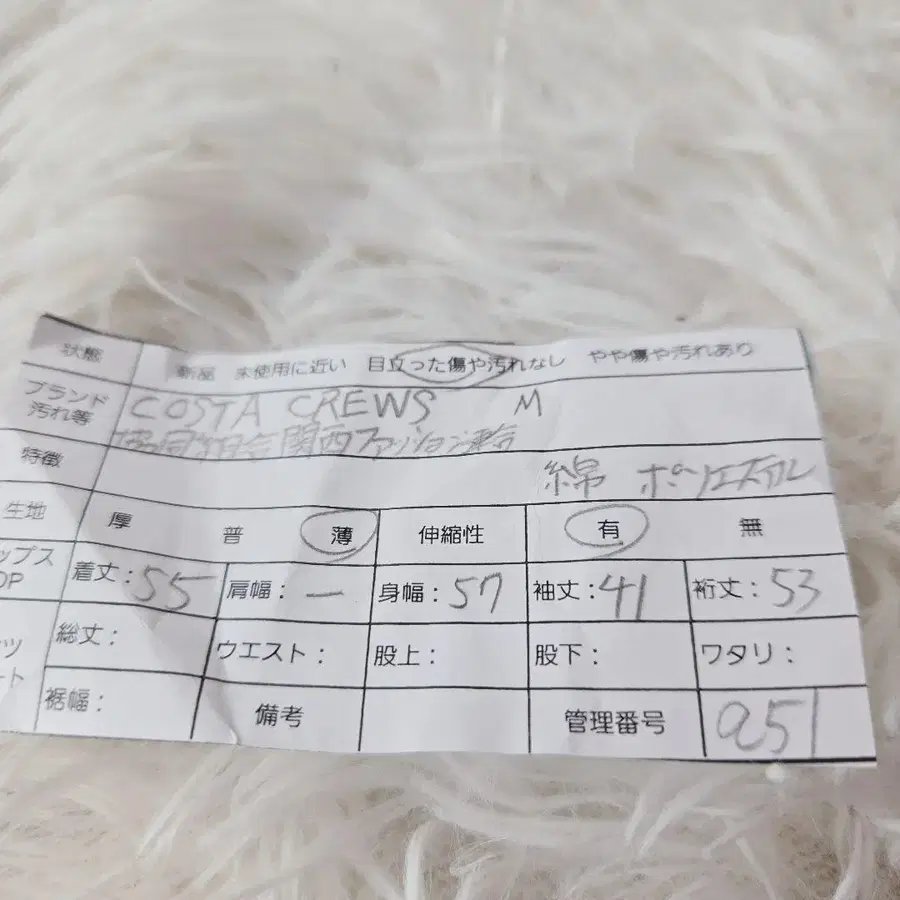 状態 新品 未使用に近い 目立った傷や汚れなし やや傷や汚れあり
ブランド COSTA CREWS M
汚れ等 協同組合関西ファッション連合
特徴 綿 ポリエステル
生地 厚 普 薄 伸縮性 有 無
ップス 着丈:55 肩幅:— 身幅:57 袖丈:41 裄丈:53
OP
総丈: ウエスト: 股上: 股下: ワタリ:
ツ
ート
裾幅: 備考 管理番号 a51